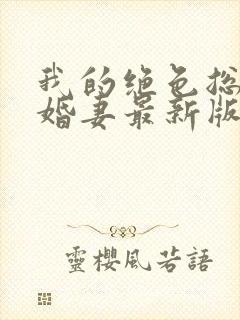 我的绝色总
婚妻最新版
靈櫻風若語